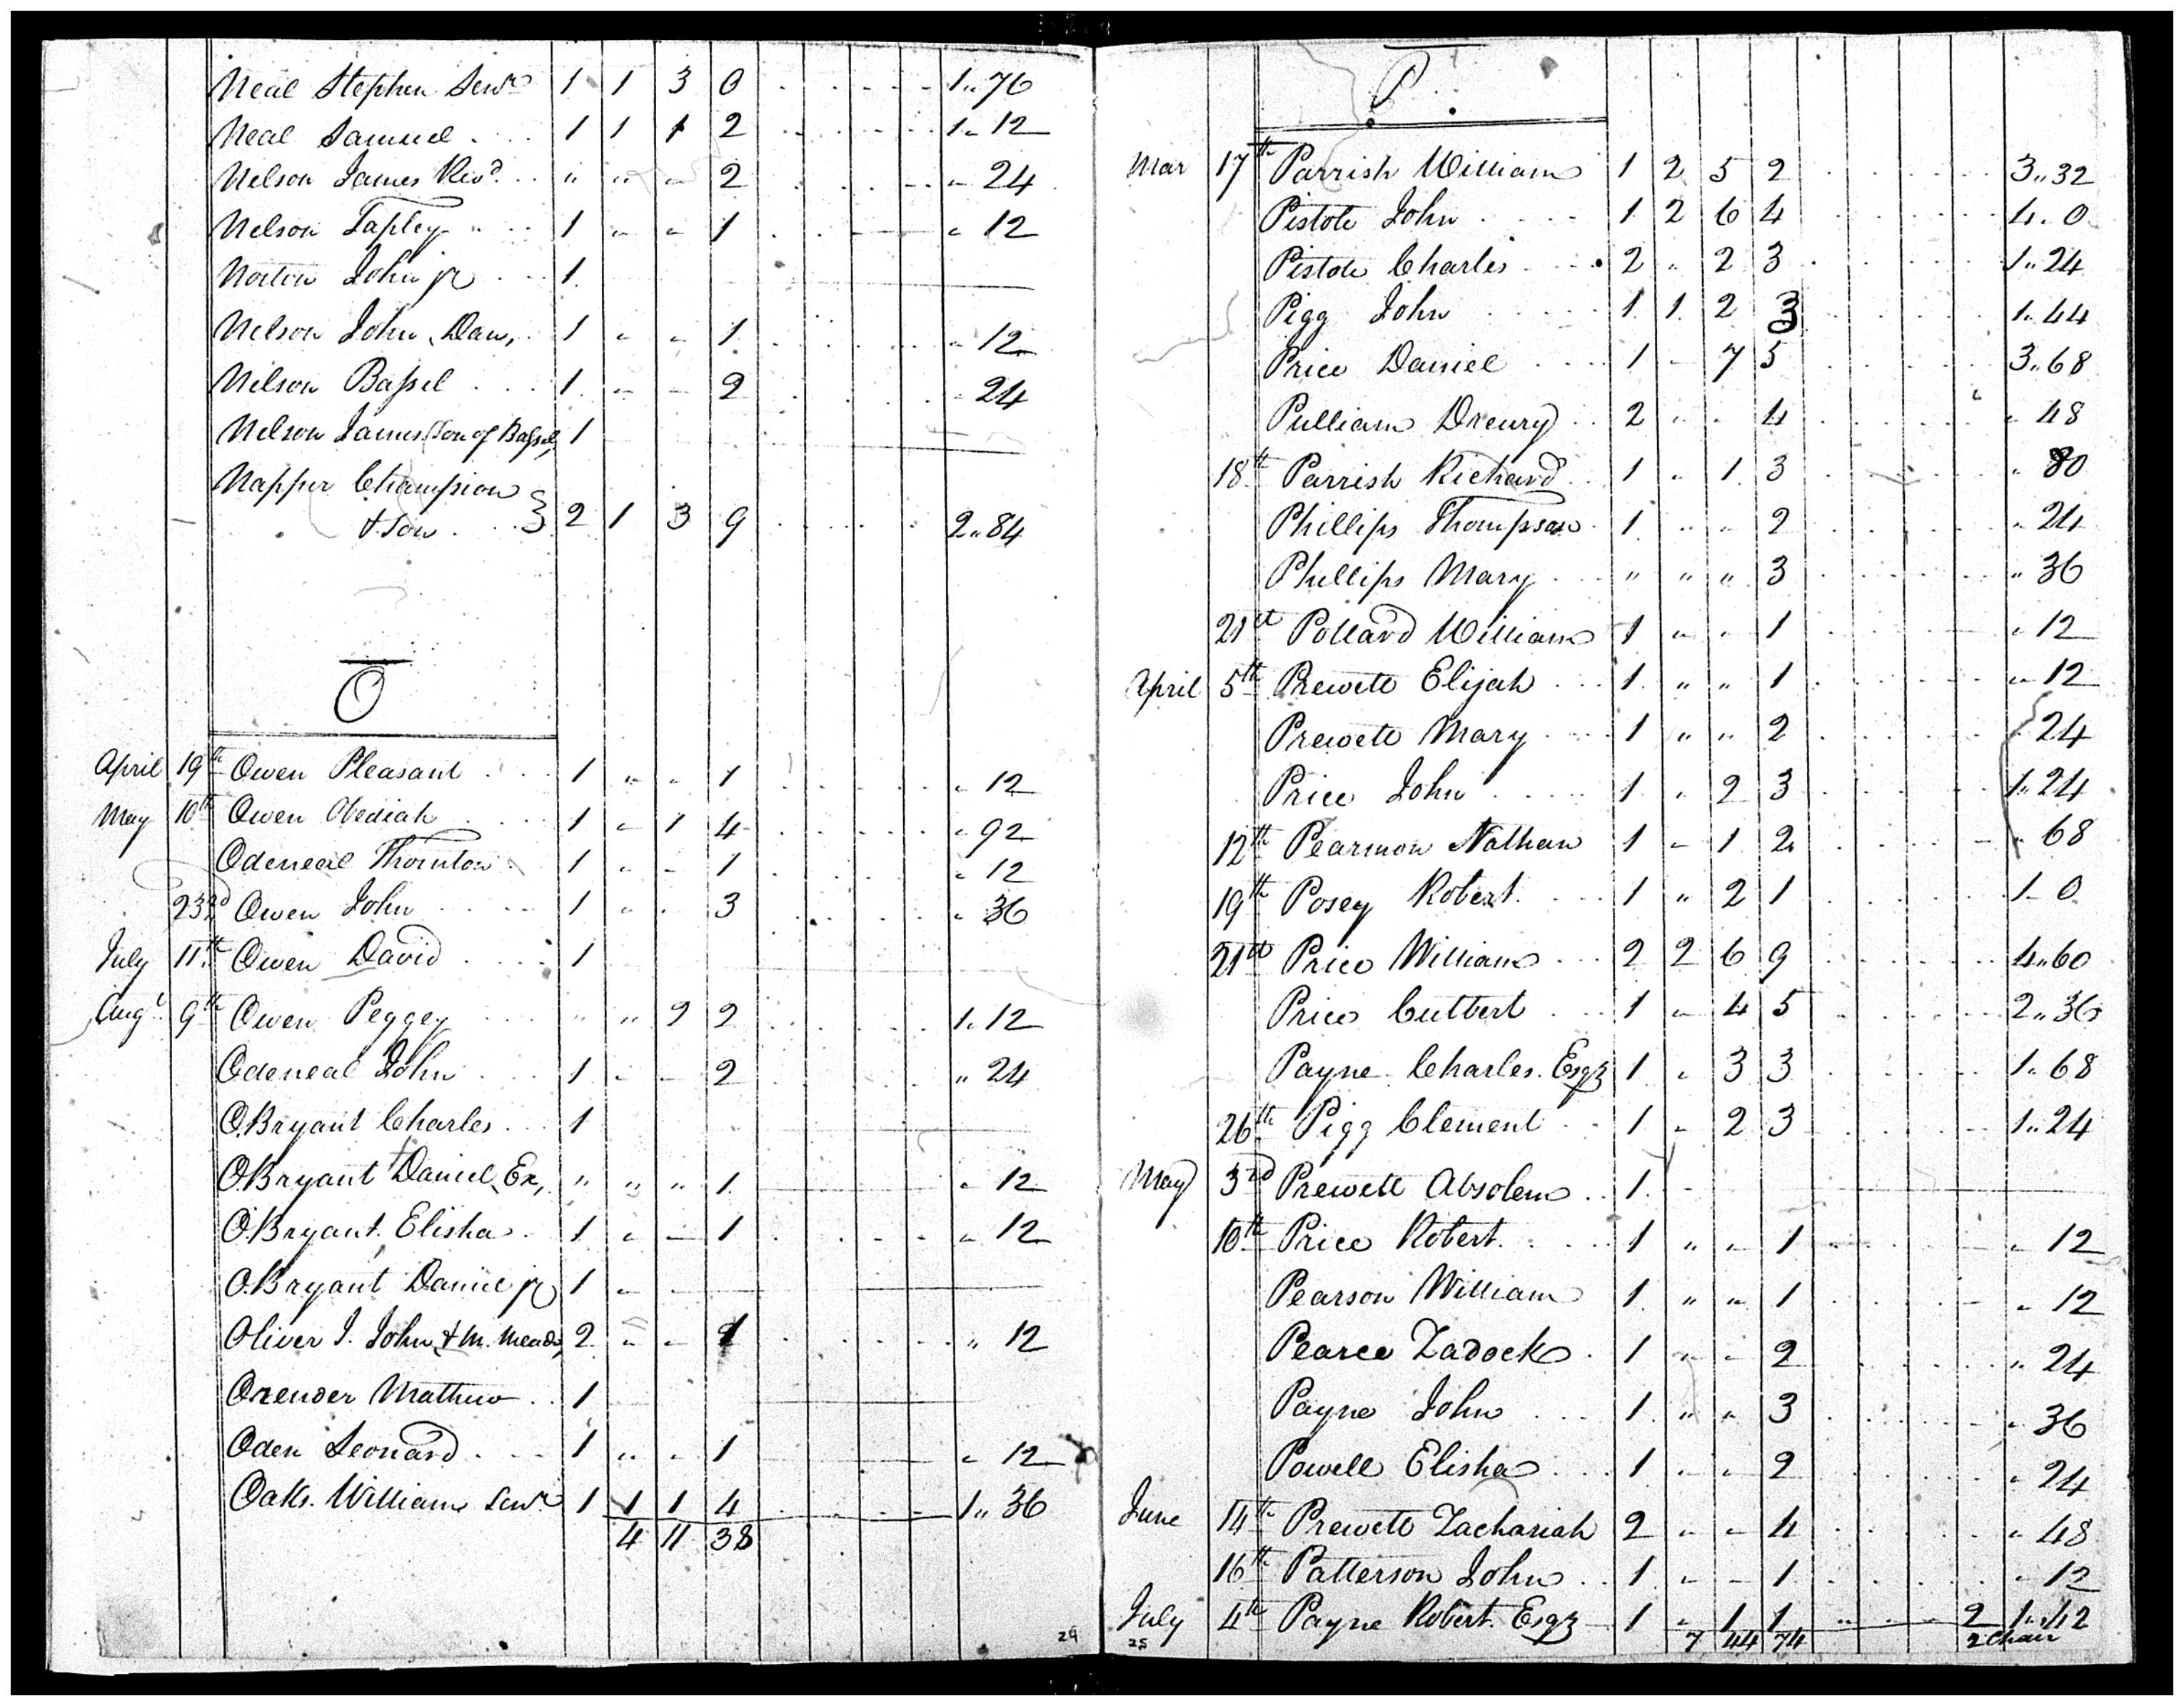 Neal Stephen Senr 1 1 3 0 1.. 76
Neal Samuel 1 1 1 2 1.. 12
Nelson James Revd. " " " 2 " 24
Nelson Tapley 1 " " 1 " 12
Norton John jr 1
Nelson John, Dan, 1 " " 1 " 12
Nelson Bassel 1 " " 2 " 24
Nelson James (Son of Bassel, 1
Napper Champion
& Son 2 1 3 9 2.. 84
O
April 19th Owen Pleasant 1 " " 1 " 12
May 10th Owen Obediah 1 " 1 4 " 92
Odeneal Thornton 1 " " 1 " 12
23rd Owen John 1 " " 3 " 36
July 11th Owen David 1
Augt. 9th Owen Peggey " " 2 2 1.. 12
Odeneal John 1 " " 2 " 24
O.Bryant Charles 1
O.Bryant Daniel, Ex, " " " 1 " 12
O.Bryant Elisha 1 " " 1 " 12
O.Bryant Daniel jr 1 "
Oliver J. John & M. Meads, 2 " " 1 " 12
Orender Mathew 1
Oden Leonard 1 " " 1 " 12
Oaks William Senr 1 1 1 4 1.. 36
4 11 38
24
P
Mar 17th Parrish William 1 2 5 2 3.. 32
Pistole John 1 2 6 4 4.. 0
Pistole Charles 2 " 2 3 1.. 24
Pigg John 1 1 2 3 1.. 44
Price Daniel 1 " 7 5 3.. 68
Pulliam Drewry 2 " " 4 " 48
18th Parrish Richard 1 " 1 3 " 80
Phillips Thompson 1 " " 2 " 24
Phillips Mary " " " 3 " 36
21st Pollard William 1 " " 1 " 12
April 5th Prewett Elijah 1 " " 1 " 12
Prewett Mary 1 " " 2 24
Price John 1 " 2 3 1.. 24
12th Pearmon Nathan 1 " 1 2 " 68
19th Posey Robert 1 " 2 1 1.. 0
21st Price William 2 2 6 9 4.. 60
Price Cutbert 1 " 4 5 2.. 36
Payne Charles Esqr 1 " 3 3 1.. 68
26th Pigg Clement 1 " 2 3 1.. 24
May 3rd Prewett Absolem 1
10th Price Robert 1 " " 1 " 12
Pearson William 1 " " 1 " 12
Pearce Zadock 1 " " 2 " 24
Payne John 1 " " 3 " 36
Powell Elisha 1 " " 2 " 24
June 14th Prewett Zachariah 2 " " 4 " 48
16th Patterson John 1 " " 1 " 12
July 4th Payne Robert Esqr 1 " 1 1 2 1.. 42
7 44 74 2 Chair
25